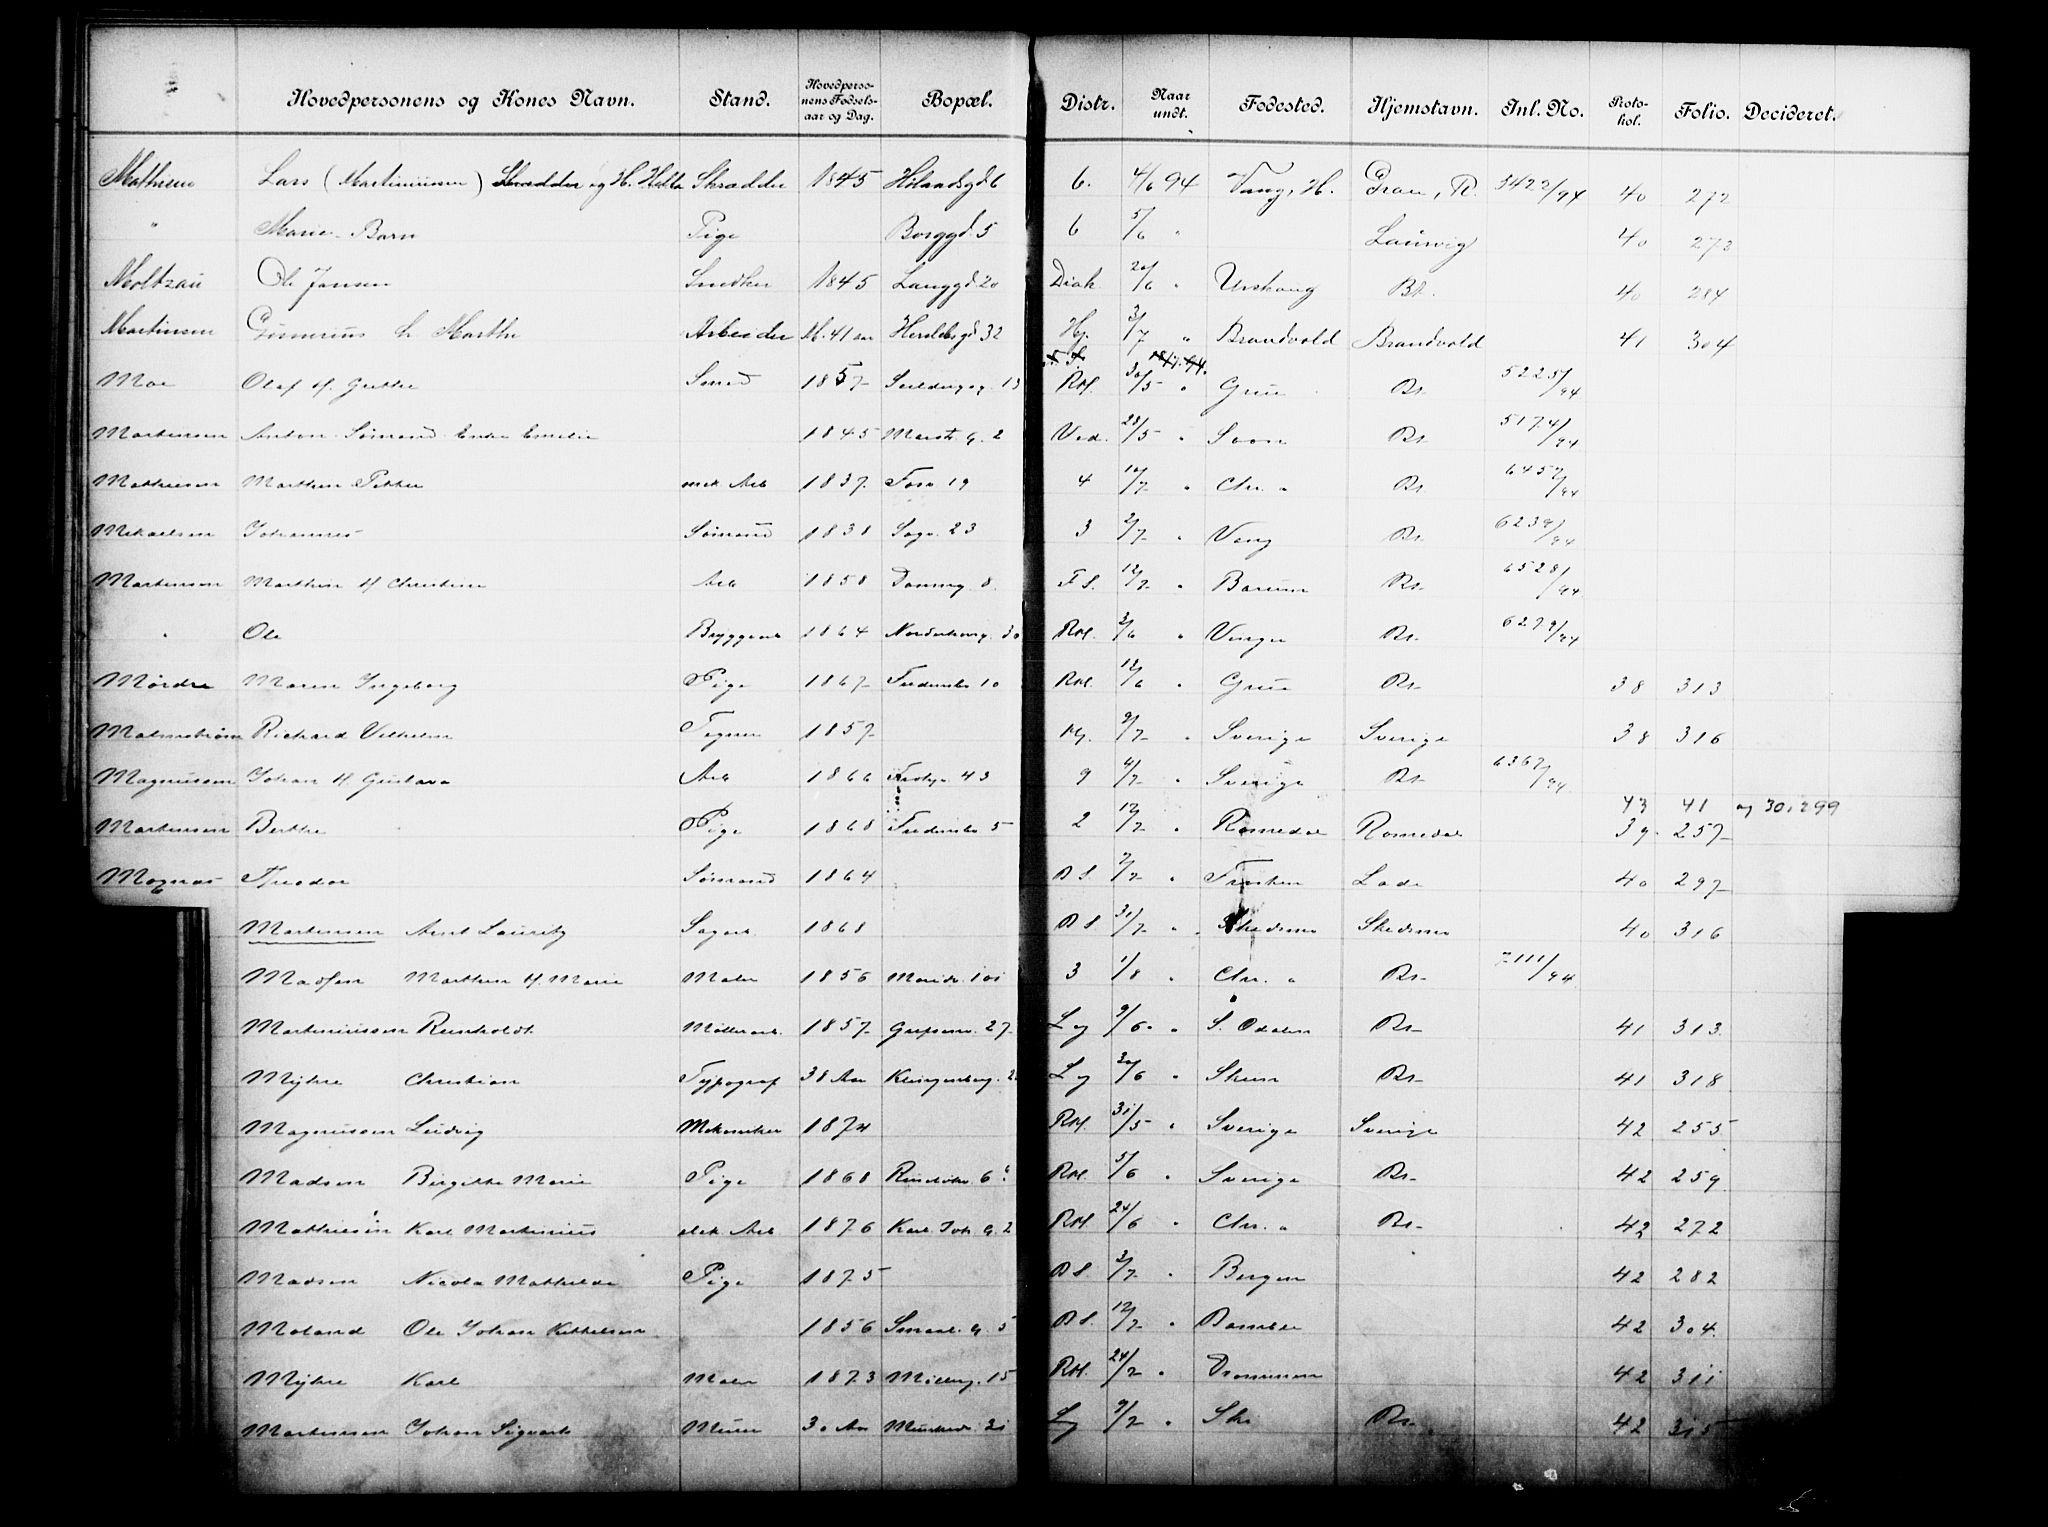 Hovedpersonens og Kones Navn. Stand. Hovedperso- nens Fødsels- aar og Dag. Bopæl. Distr. Naar undt. Fødested. Hjemstavn. Inl. No. Proto- kol. Folio. Decideret.
Lars (Martiniussen) Skrædder 1845 6. 4/6 94 Vang, H. Gran, R. 5422/94 40 272
" Marie Barn Pige Borggd. 5 6 5/6 " Laurvig 40 273
Moltzau Ole Jansen Snedker 1845 Langgd. 20 Diak 20/6 " Urskoug Bt. 40 284
Martinsen h. Marthe Arbeider M. 41 aar Herslebsgd 32 Hj. 3/7 " Brandvold Brandvold 41 304
Moe Olaf H. Grethe Smed 1857 13 RH. 30/5 " Grue Bt. 5225/94
Martinsen Anton Sømand Enke Emilie 1845 2 Vod. 28/5 " Soon Bt 5174/94
Mathiesen Marthin Petter mek Arb 1837 Foss 19 4 10/7 " Chr. " Bt 6457/94
Mikaelsen Johannes Sømand 1838 Sags. 23 3 2/7 " Vang Bt. 6239/94
Martinsen Marthin H Christine Arb 1858 8. F S. 12/7 " Bærum Bt. 6528/94
" Ole Bryggearb 1864 Norderhovg. 30 RH. 2/6 " Vinger Bt. 6279/94
Mørdre Maren Ingeborg Pige 1867 Fredensbo 10 RH. 12/6 " Grue Bt. 38 313
Malmstrøm Richard Vilhelm Tegner 1857 Hj. 9/7 " Sverige Sverige 38 316
Magnussen Johan H Gustava Arb 1866 43 9 4/7 " Sverige Bt. 6367/94
43 41 og 30, 299
Martinsen Berthe Pige 1868 Fredensbo 5 2 12/7 " Romedal Romedal 39. 257
Magnus Theodor Sømand 1864 B S. 7/7 " Lade 40 297
Martinsen Arnt Lauritz Sagarb. 1868 B S 31/7 " Skedsmo Skedsmo 40 316
Madsen Marthin H. Marie Maler 1856 Marids. 101 3 1/8 " Chr. " Bt. 7111/94
Martiniussen Reinholdt Møllerarb. 1857 27 Lg 9/6 " S. Odalen Bt. 41 313
Myhre Christian Typograf 38 Aar Klingenbergg. 2 Lg 20/6 " Skien Bt. 41 318
Magnussen Ludvig Mekaniker 1874 RH. 31/5 " Sverige Sverige 42 255
Madsen Birgitte Marie Pige 1868 6 RH. 5/6 " Sverige Bt. 42 259.
Mathiesen Karl Martinius elek Arb. 1876 Karl Joh. G. 2 RH. 24/6 " Chr. " Bt. 42 272
Madsen Nicola Mathilde Pige 1875 B S. 3/7 " Bergen 42 282
Moland Ole Johan Kittelsen 1856 5 B S. 12/7 " Bamble 42 304.
Myhre Karl Maler 1873 Møllerg. 15 RH. 24/7 " Drammen 42 311
Martinsen Johan Sigvart Murer 30 Aar 21 Lg 9/7 " Ski Bt. 42 315